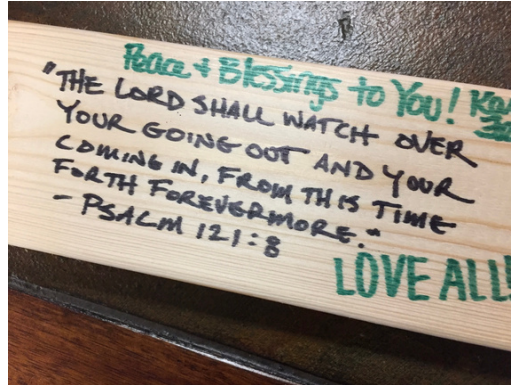 Peace + Blessings to You!
"THE LORD SHALL WATCH OVER
YOUR GOING OUT AND YOUR
COMING IN, FROM THIS TIME
FORTH FOREVERMORE."
- PSALM 121:8
LOVE ALL!